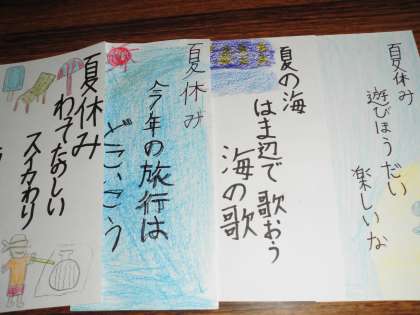 夏休み
遊びほうだい
楽しいな
夏の海
はま辺で歌おう
海の歌
夏休み
今年の旅行は
どこいこう
夏休み
わってたのしい
スイカわり